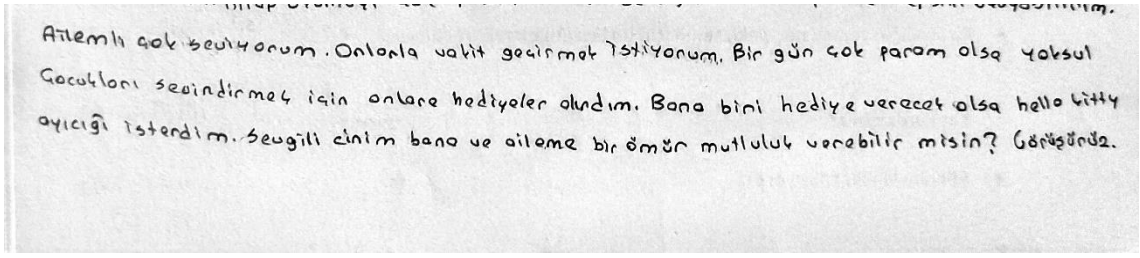 Ailemi çok seviyorum. Onlarla vakit geçirmek istiyorum. Bir gün çok param olsa yoksul
Çocukları sevindirmek için onlara hediyeler alırdım. Bana biri hediye verecek olsa hello kitty
ayıcığı isterdim. Sevgili cinim bana ve aileme bir ömür mutluluk verebilir misin? Görüşürüz.